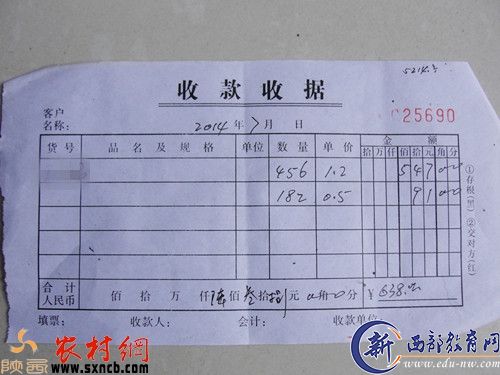 5214.
收款收据
客户
名称： 2014 年 7 月 日 025690
货号 品名及规格 单位 数量 单价 金额
拾 万 仟 佰 拾 元 角 分
456 1.2 5 4 7 0 0
182 0.5 9 1 0 0
①存根（黑） ②交对方（红）
合计
人民币 佰 拾 万 仟 陆 佰 叁 拾 捌 元 0 角 0 分 ¥ 638.00
填票： 收款人： 会计： 收款单位
陕西 农村網
www.sxncb.com
新 西部教育网
www.edu-nw.com